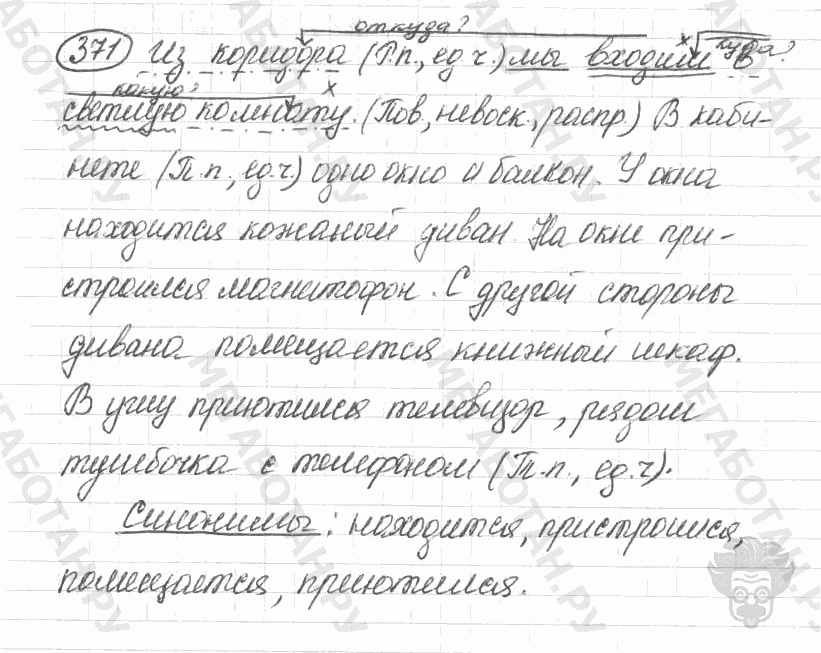 откуда?
371 Из коридора (Р.п., ед.ч.) мы входим в куда?
какую?
светлую комнату. (Пов., невоск., распр.) В каби-
нете (П.п., ед.ч.) одно окно и балкон. У окна
находится кожаный диван. На окне при-
строился магнитофон. С другой стороны
дивана помещается книжный шкаф.
В углу приютился телевизор, рядом
тумбочка с телефоном (Т.п., ед.ч).
Синонимы: находится, пристроился,
помещается, приютился.
МЕГАБОТАН.РУ